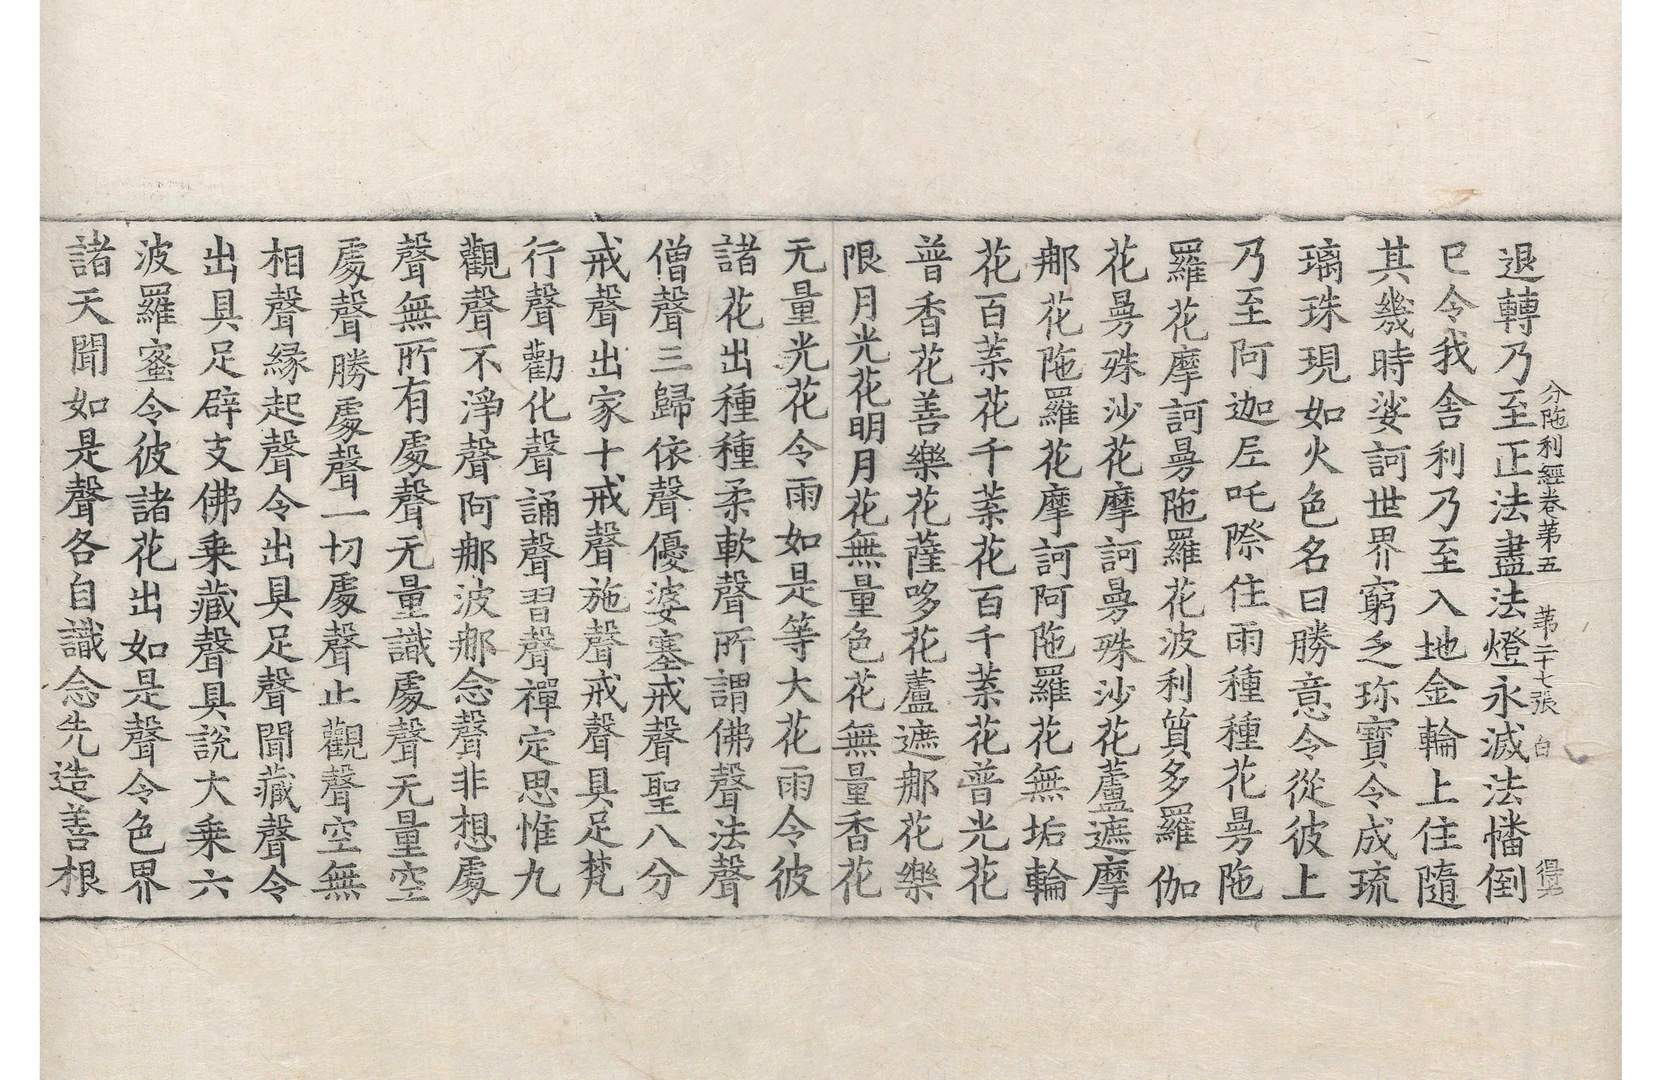 分陁利經卷苐五 苐二十七張 白 得
退轉乃至正法盡法燈永滅法幡倒
已令我舍利乃至入地金輪上住隨
其幾時娑訶世界窮乏珎寶令成琉
璃珠現如火色名曰勝意令從彼上
乃至阿迦𡰱吒際住雨種種花曼陁
羅花摩訶曼陁羅花波利質多羅伽
花曼殊沙花摩訶曼殊沙花蘆遮摩
那花陁羅花摩訶阿陁羅花無垢輪
花百葉花千葉花百千葉花普光花
普香花善樂花薩哆花蘆遮那花樂
限月光花明月花無量色花無量香花
无量光花令雨如是等大花雨令彼
諸花出種種柔軟聲所謂佛聲法聲
僧聲三歸依聲優婆塞戒聲聖八分
戒聲出家十戒聲施聲戒聲具足梵
行聲勸化聲誦聲習聲禪定思惟九
觀聲不淨聲阿那波那念聲非想處
聲無所有處聲无量識處聲无量空
處聲勝處聲一切處聲止觀聲空無
相聲緣起聲令出具足聲聞藏聲令
出具足辟支佛乘藏聲具說大乘六
波羅蜜令彼諸花出如是聲令色界
諸天聞如是聲各自識念先造善根